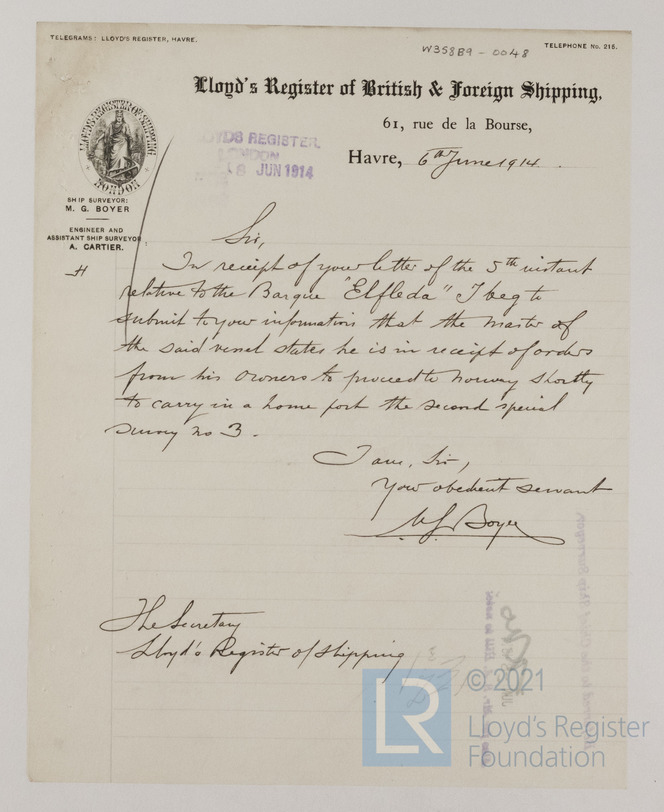 TELEGRAMS: LLOYD'S REGISTER, HAVRE.
W358B9 - 0048
TELEPHONE No. 215.
Lloyd's Register of British & Foreign Shipping,
61, rue de la Bourse,
Havre, 6th June 1914.
LLOYD'S REGISTER OF SHIPPING
LONDON
LLOYDS REGISTER.
LONDON
8 JUN 1914
SHIP SURVEYOR:
M. G. BOYER
ENGINEER AND
ASSISTANT SHIP SURVEYOR:
A. CARTIER.
Sir,
In receipt of your letter of the 5th instant
relative to the Barque "Elfleda" I beg to
submit to your information that the master of
the said vessel states he is in receipt of orders
from his owners to proceed to Norway shortly
to carry in a home port the second special
survey no 3.
I am, Sir,
Your obedient servant
M G Boyer
The Secretary
Lloyd's Register of Shipping
© 2021
LR
Lloyd's Register
Foundation